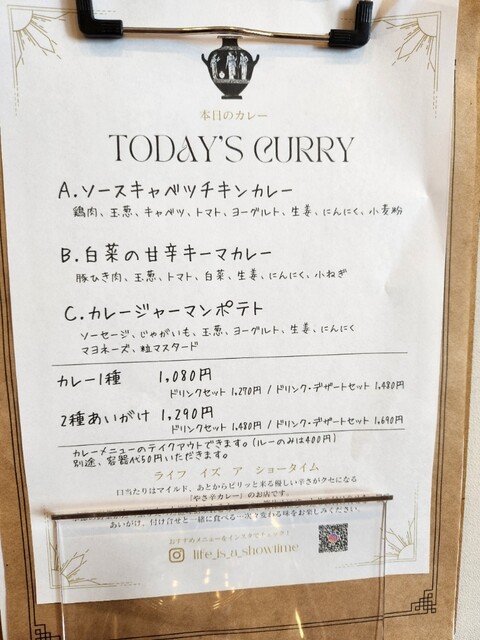 本日のカレー
TODAY'S CURRY
A.ソースキャベツチキンカレー
鶏肉、玉葱、キャベツ、トマト、ヨーグルト、生姜、にんにく、小麦粉
B.白菜の甘辛キーマカレー
豚ひき肉、玉葱、トマト、白菜、生姜、にんにく、小ねぎ
C.カレージャーマンポテト
ソーセージ、じゃがいも、玉葱、ヨーグルト、生姜、にんにく
マヨネーズ、粒マスタード
カレー1種 1,080円
ドリンクセット 1,270円 / ドリンク・デザートセット 1,480円
2種あいがけ 1,290円
ドリンクセット 1,480円 / ドリンク・デザートセット 1,690円
カレーメニューのテイクアウトできます。(ルーのみは400円)
別途、容器代50円いただきます。
ライフ イズ ア ショータイム
口当たりはマイルド、あとからピリッと来る優しい辛さがクセになる
「やさ辛カレー」のお店です。
あいがけ、付け合せと一緒に食べる…次々変わる味をお楽しみください。
おすすめメニューをインスタでチェック!
life_is_a_showtime